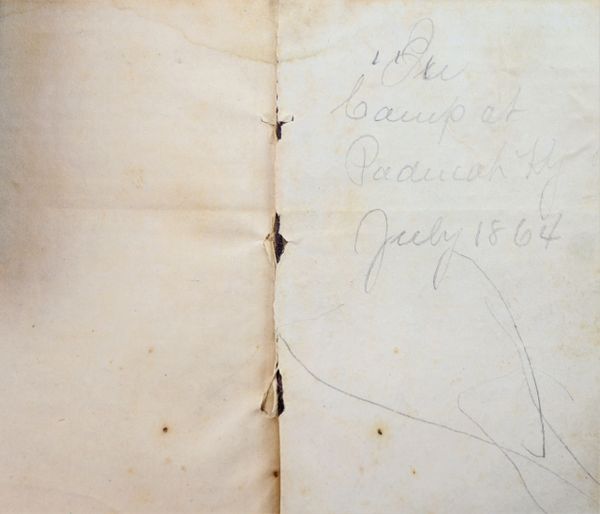 "In
Camp at
Paducah Ky
July 1864